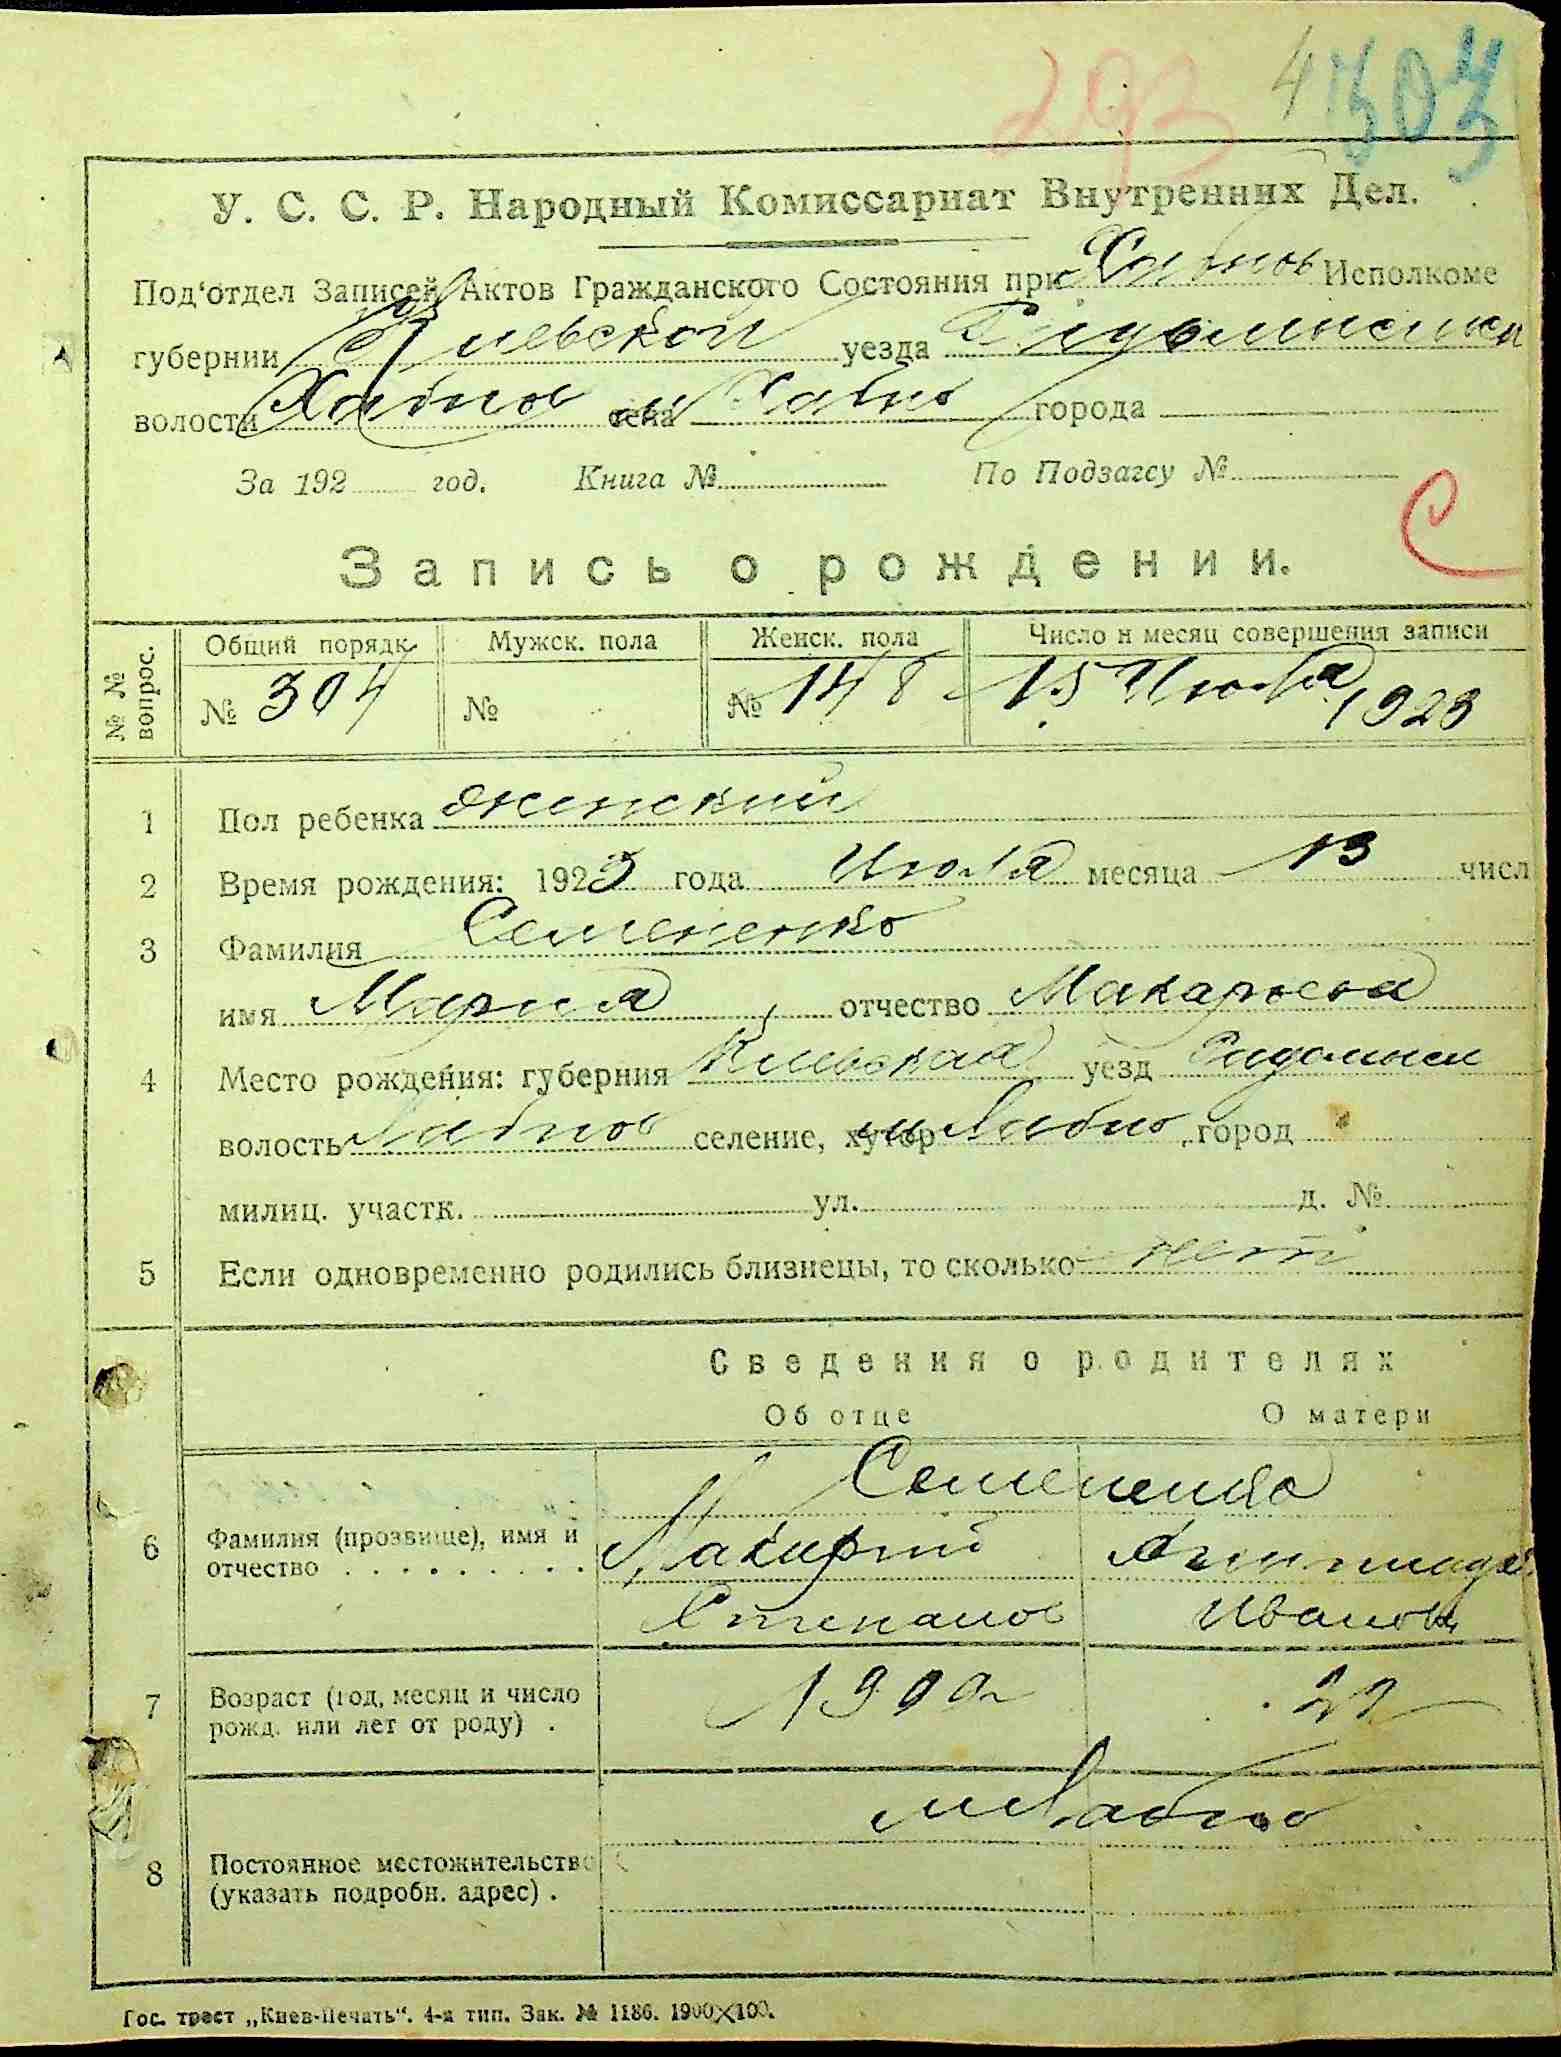 293 4
У. С. С. Р. Народный Комиссариат Внутренних Дел.
Под'отдел Записей Актов Гражданского Состояния при Хабнов Исполкоме
губернии Киевской уезда
волости Хабнов села м Хабно города
За 192 год. Книга № По Подзагсу №
С
Запись о рождении.
№ № вопрос. Общий порядк. Мужск. пола Женск. пола Число и месяц совершения записи
№ 304 № № 148 15 Июля 1923
1 Пол ребенка женский
2 Время рождения: 1923 года Июля месяца 13 числ
3 Фамилия Семененко
имя Мария, отчество Макарьева
4 Место рождения: губерния Киевская уезд Радомысл
волость Хабнов селение, хутор м Хабно, город
милиц. участк. ул. д. №
5 Если одновременно родились близнецы, то сколько нет
Сведения о родителях
Об отце О матери
Семененко
6 Фамилия (прозвище), имя и Макарий
отчество . . . . . . . . . .
Степанов Иванов
7 Возраст (год, месяц и число 1900 22
рожд. или лет от роду) .
м Хабно
8 Постоянное местожительство
(указать подробн. адрес) .
Гос. трест „Киев-Печать“. 4-я тип. Зак. № 1186. 1900×100.